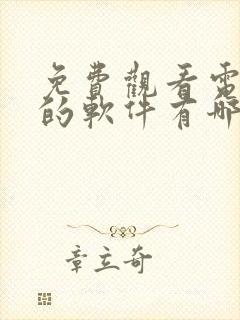 免費觀看電
的軟件有哪
章立奇